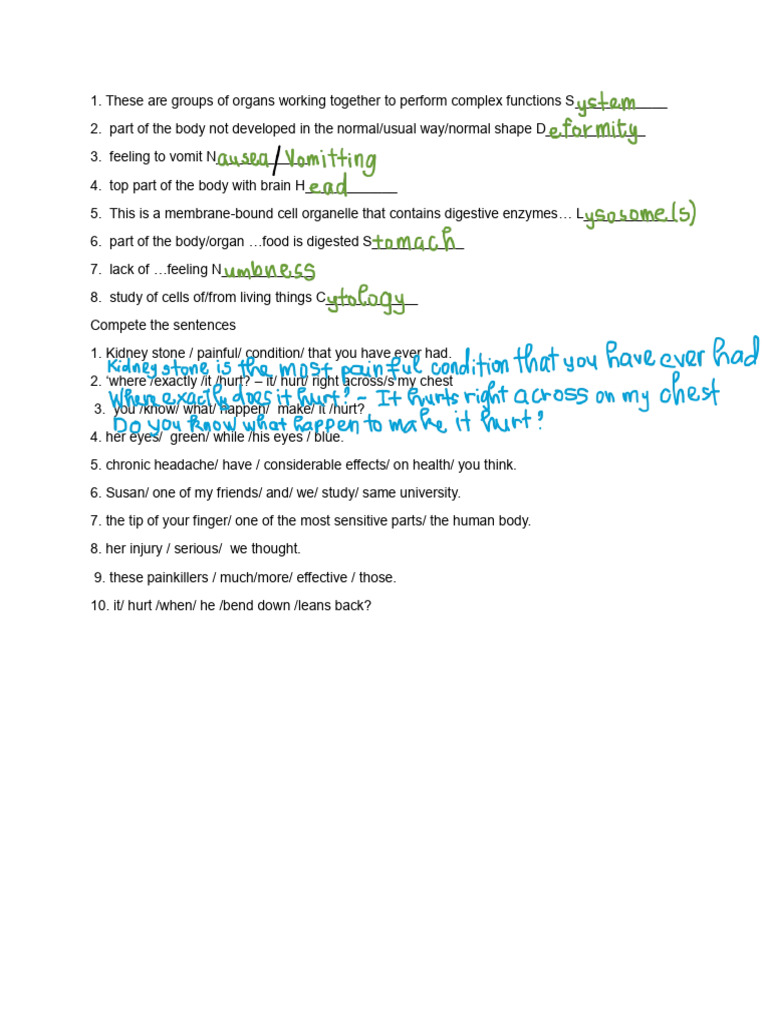 1. These are groups of organs working together to perform complex functions System
2. part of the body not developed in the normal/usual way/normal shape Deformity
3. feeling to vomit Nausea/Vomitting
4. top part of the body with brain Head
5. This is a membrane-bound cell organelle that contains digestive enzymes… Lysosome(s)
6. part of the body/organ …food is digested Stomach
7. lack of …feeling Numbness
8. study of cells of/from living things Cytology
Compete the sentences
1. Kidney stone / painful/ condition/ that you have ever had.
Kidney stone is the most painful condition that you have ever had
2. ‘where /exactly /it /hurt? – it/ hurt/ right across/s my chest
Where exactly does it hurt? - It hurts right across on my chest
3. you /know/ what/ happen/ make/ it /hurt?
Do you know what happen to make it hurt?
4. her eyes/ green/ while /his eyes / blue.
5. chronic headache/ have / considerable effects/ on health/ you think.
6. Susan/ one of my friends/ and/ we/ study/ same university.
7. the tip of your finger/ one of the most sensitive parts/ the human body.
8. her injury / serious/ we thought.
9. these painkillers / much/more/ effective / those.
10. it/ hurt /when/ he /bend down /leans back?